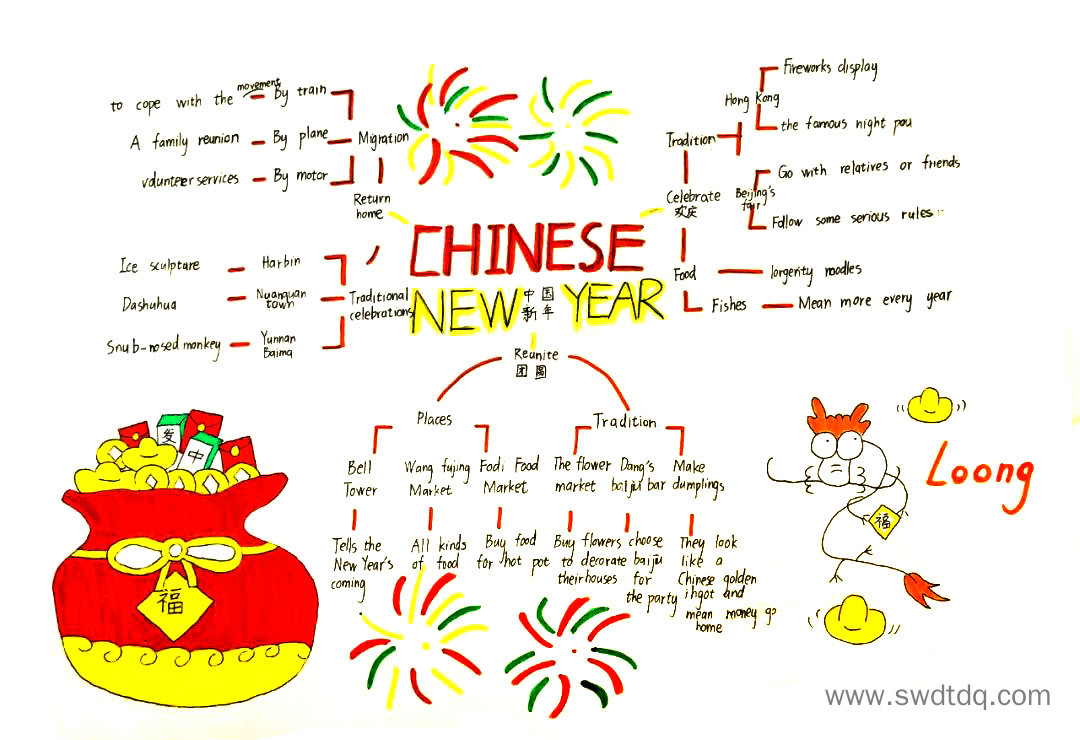 to cope with the movement By train
A family reunion By plane Migration
vdunteer services By motor
Return
home
Ice sculptare Harbin
Dashuhua Nuanquan
town
Traditional
celebrations
Snub-nosed monkey Yunnan
Baima
CHINESE
NEW 中国 YEAR
新年
Fireworks display
Hong Kong
the famous night pau
Tradition
Go with relatives or friends
Celebrate
欢庆
Beijing's
fair
Follow some serious rules
Food longerity noodles
Fishes Mean more every year
Reunite
团圆
Places
Tradition
Bell
Tower
Wang fujing
Market
Fodi Food
Market
The flower
market
Dang's
baijiu bar
Make
dumplings
Tells the
New Year's
coming
All kinds
of food
Buy food
for hot pot
Buy flowers
to decorate
their houses
choose
baijiu
for
the party
They look
like a
Chinese golden
ihgot and
mean money go
home
发
中
福
福
Loong
www.swdtdq.com